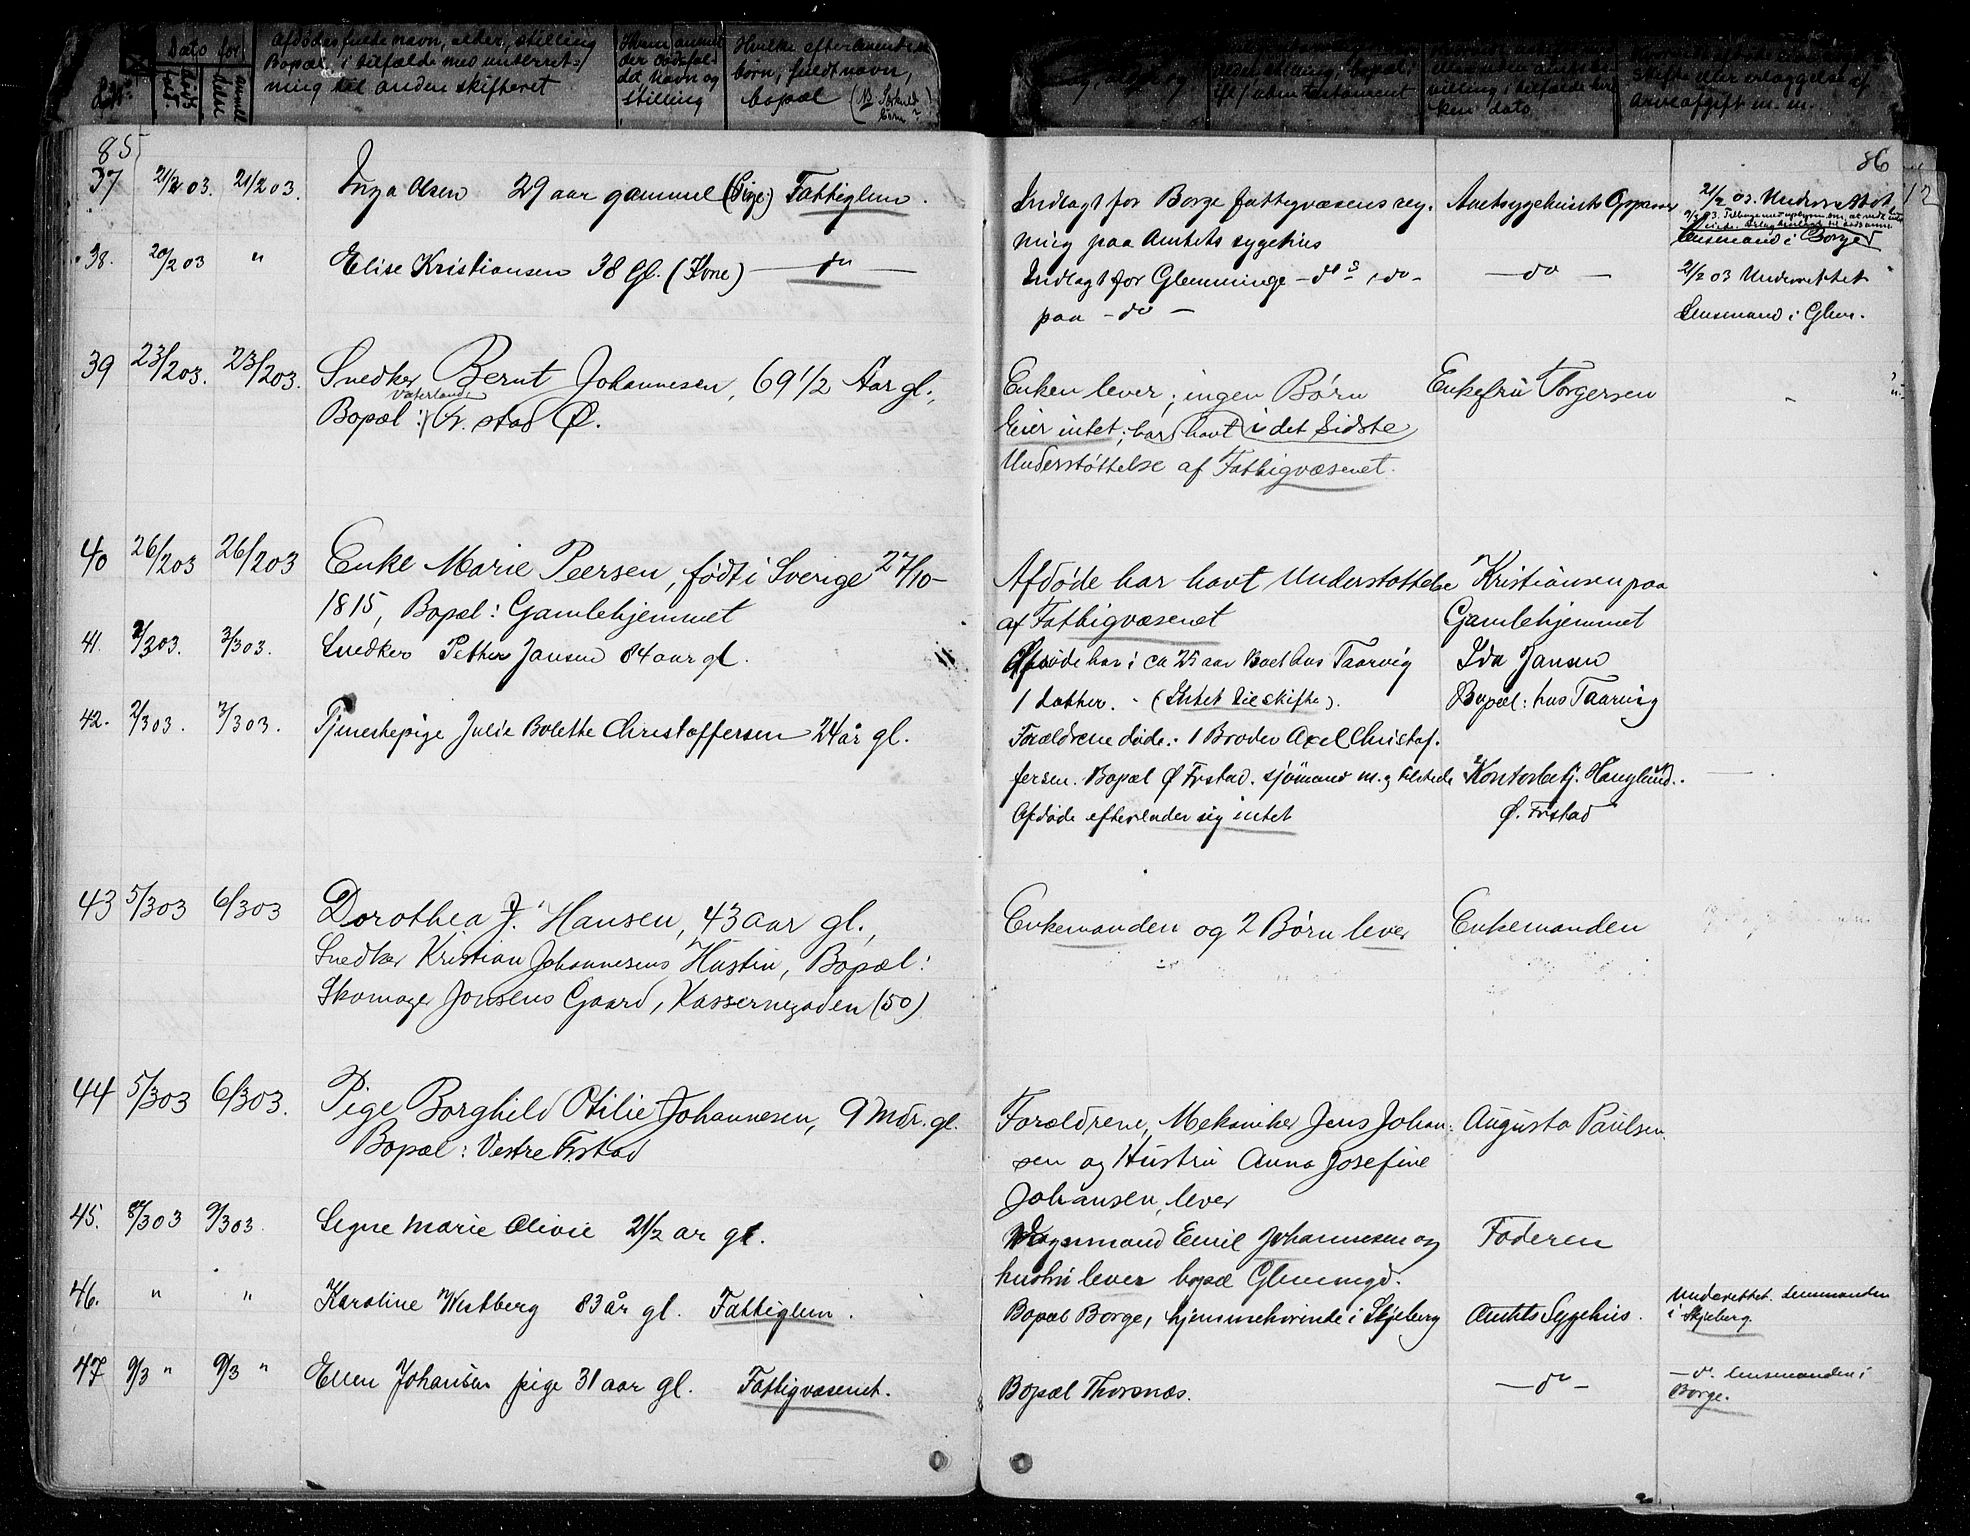 Dato for
Afdødes fulde navn, alder, stilling
Bopæl i tilfælde med underret-
ning til anden skifteret
Hvem anmel
der dødsfal
det Navn og
stilling
Hvilke efterlevende
børn, fuldt navn,
bopæl
85
86
37 21/2 03. 21/2 03. Inga Olsen 29 aar gammel (Pige) Fattiglem.
Indlagt for Borge fattigvæsens reg-
ning paa Amtets sygehus
21/2 03. Underrettet
Lensmand i Borge
38. 20/2 03 " Elise Kristiansen 38 gl. (Kone) — do —
Indlagt for Glemminge - do s - do -
paa - do -
— do —
21/2 03 Underrettet
Lensmand i Glem.
39 23/2 03. 23/2 03. Snedker Bernt Johannesen, 69 1/2 Aar gl.,
Vaterland
Bopæl: Fr. stad Ø.
Enken lever; ingen Børn
Eier intet; har havt i det Sidste
Understøttelse af Fattigvæsenet.
Enkefru Torgersen
40 26/2 03 26/2 03 Enke Marie Peersen, født i Sverige 27/10-
1815, Bopæl: Gamlehjemmet
Afdøde har havt Understøttelse
af Fattigvæsenet
Kristiansen paa
Gamlehjemmet
41. 2/3 03. 3/3 03. Snedker Petter Jansen 84 aar gl.
Afdøde har i ca 25 aar Boet hus Taarvig
1 datter. - (Intet til skifte).
Ida Jansen
Bopæl: hus Taarvig
42. 2/3 03. 3/3 03. Tjenestepige Julie Bolette Christoffersen 24 år gl.
Forældrene døde: 1 Broder Axel Christof-
fersen. Bopæl Ø Frstad. sjömand m. g tilstede
Afdøde efterlader sig intet
Kontorbetj. Hauglund.
Ø. Frstad
43 5/3 03 6/3 03 Dorothea J. Hansen, 43 aar gl.,
Snedker Kristian Johannesens Hustru, Bopæl:
Skomager Jonsens Gaard, Kassernegaden (50)
Enkemanden og 2 Børn lever
Enkemanden
44 5/3 03 6/3 03. Pige Borghild Otilie Johannesen, 9 Mdr. gl.
Bopæl: Vestre Frstad
Forældrene, Mekaniker Jens Johan-
sen og Hustru Anna Josefine
Johansen, lever
Augusta Paulsen
45. 8/3 03 9/3 03. Signe Marie Olivie 2 1/2 ar gl.
Vognmand Emil Johannesen og
hustru lever bopæl Glemmingd.
Faderen
46. " " Karoline Westberg 83 år gl. Fattiglem.
Bopæl Borge, hjemmehörende i Skjeberg
Amtets Sygehus.
Underrettet Lensmanden
i Skjeberg.
47 9/3 " 9/3 " Ellen Johansen pige 31 aar gl. Fattigvæsenet.
Bopæl Thorsnæs.
— do —
— do Lensmanden i
Borge.